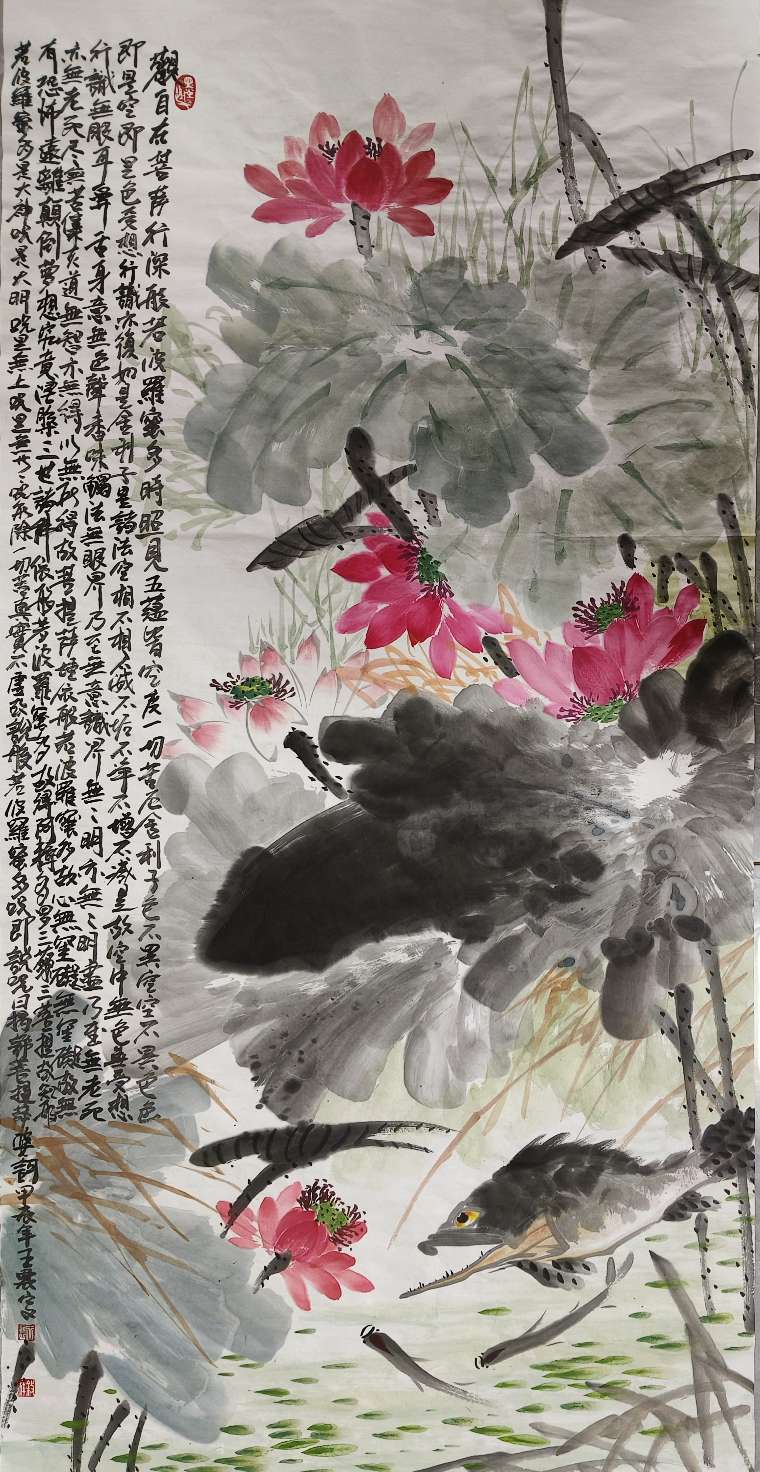 觀自在菩薩行深般若波羅蜜多時照見五蘊皆空度一切苦厄舍利子色不異空空不異色色
即是空空即是色受想行識亦復如是舍利子是諸法空相不相不滅不垢不淨不增不減是故空中無色無受想
行識無眼耳鼻舌身意無色聲香味觸法無眼界乃至無意識界無無明亦無無明盡乃至無老死
亦無老死盡無苦集滅道無智亦無得以無所得故菩提薩埵依般若波羅蜜多故心無罣礙無罣礙故無
有恐怖遠離顛倒夢想究竟涅槃三世諸佛依般若波羅蜜多故得阿耨多羅三藐三菩提故知般
若波羅蜜多是大神咒是大明咒是無上咒是無等等咒能除一切苦真實不虛故說般若波羅蜜多咒即說咒曰揭諦菩提薩婆訶甲辰年王